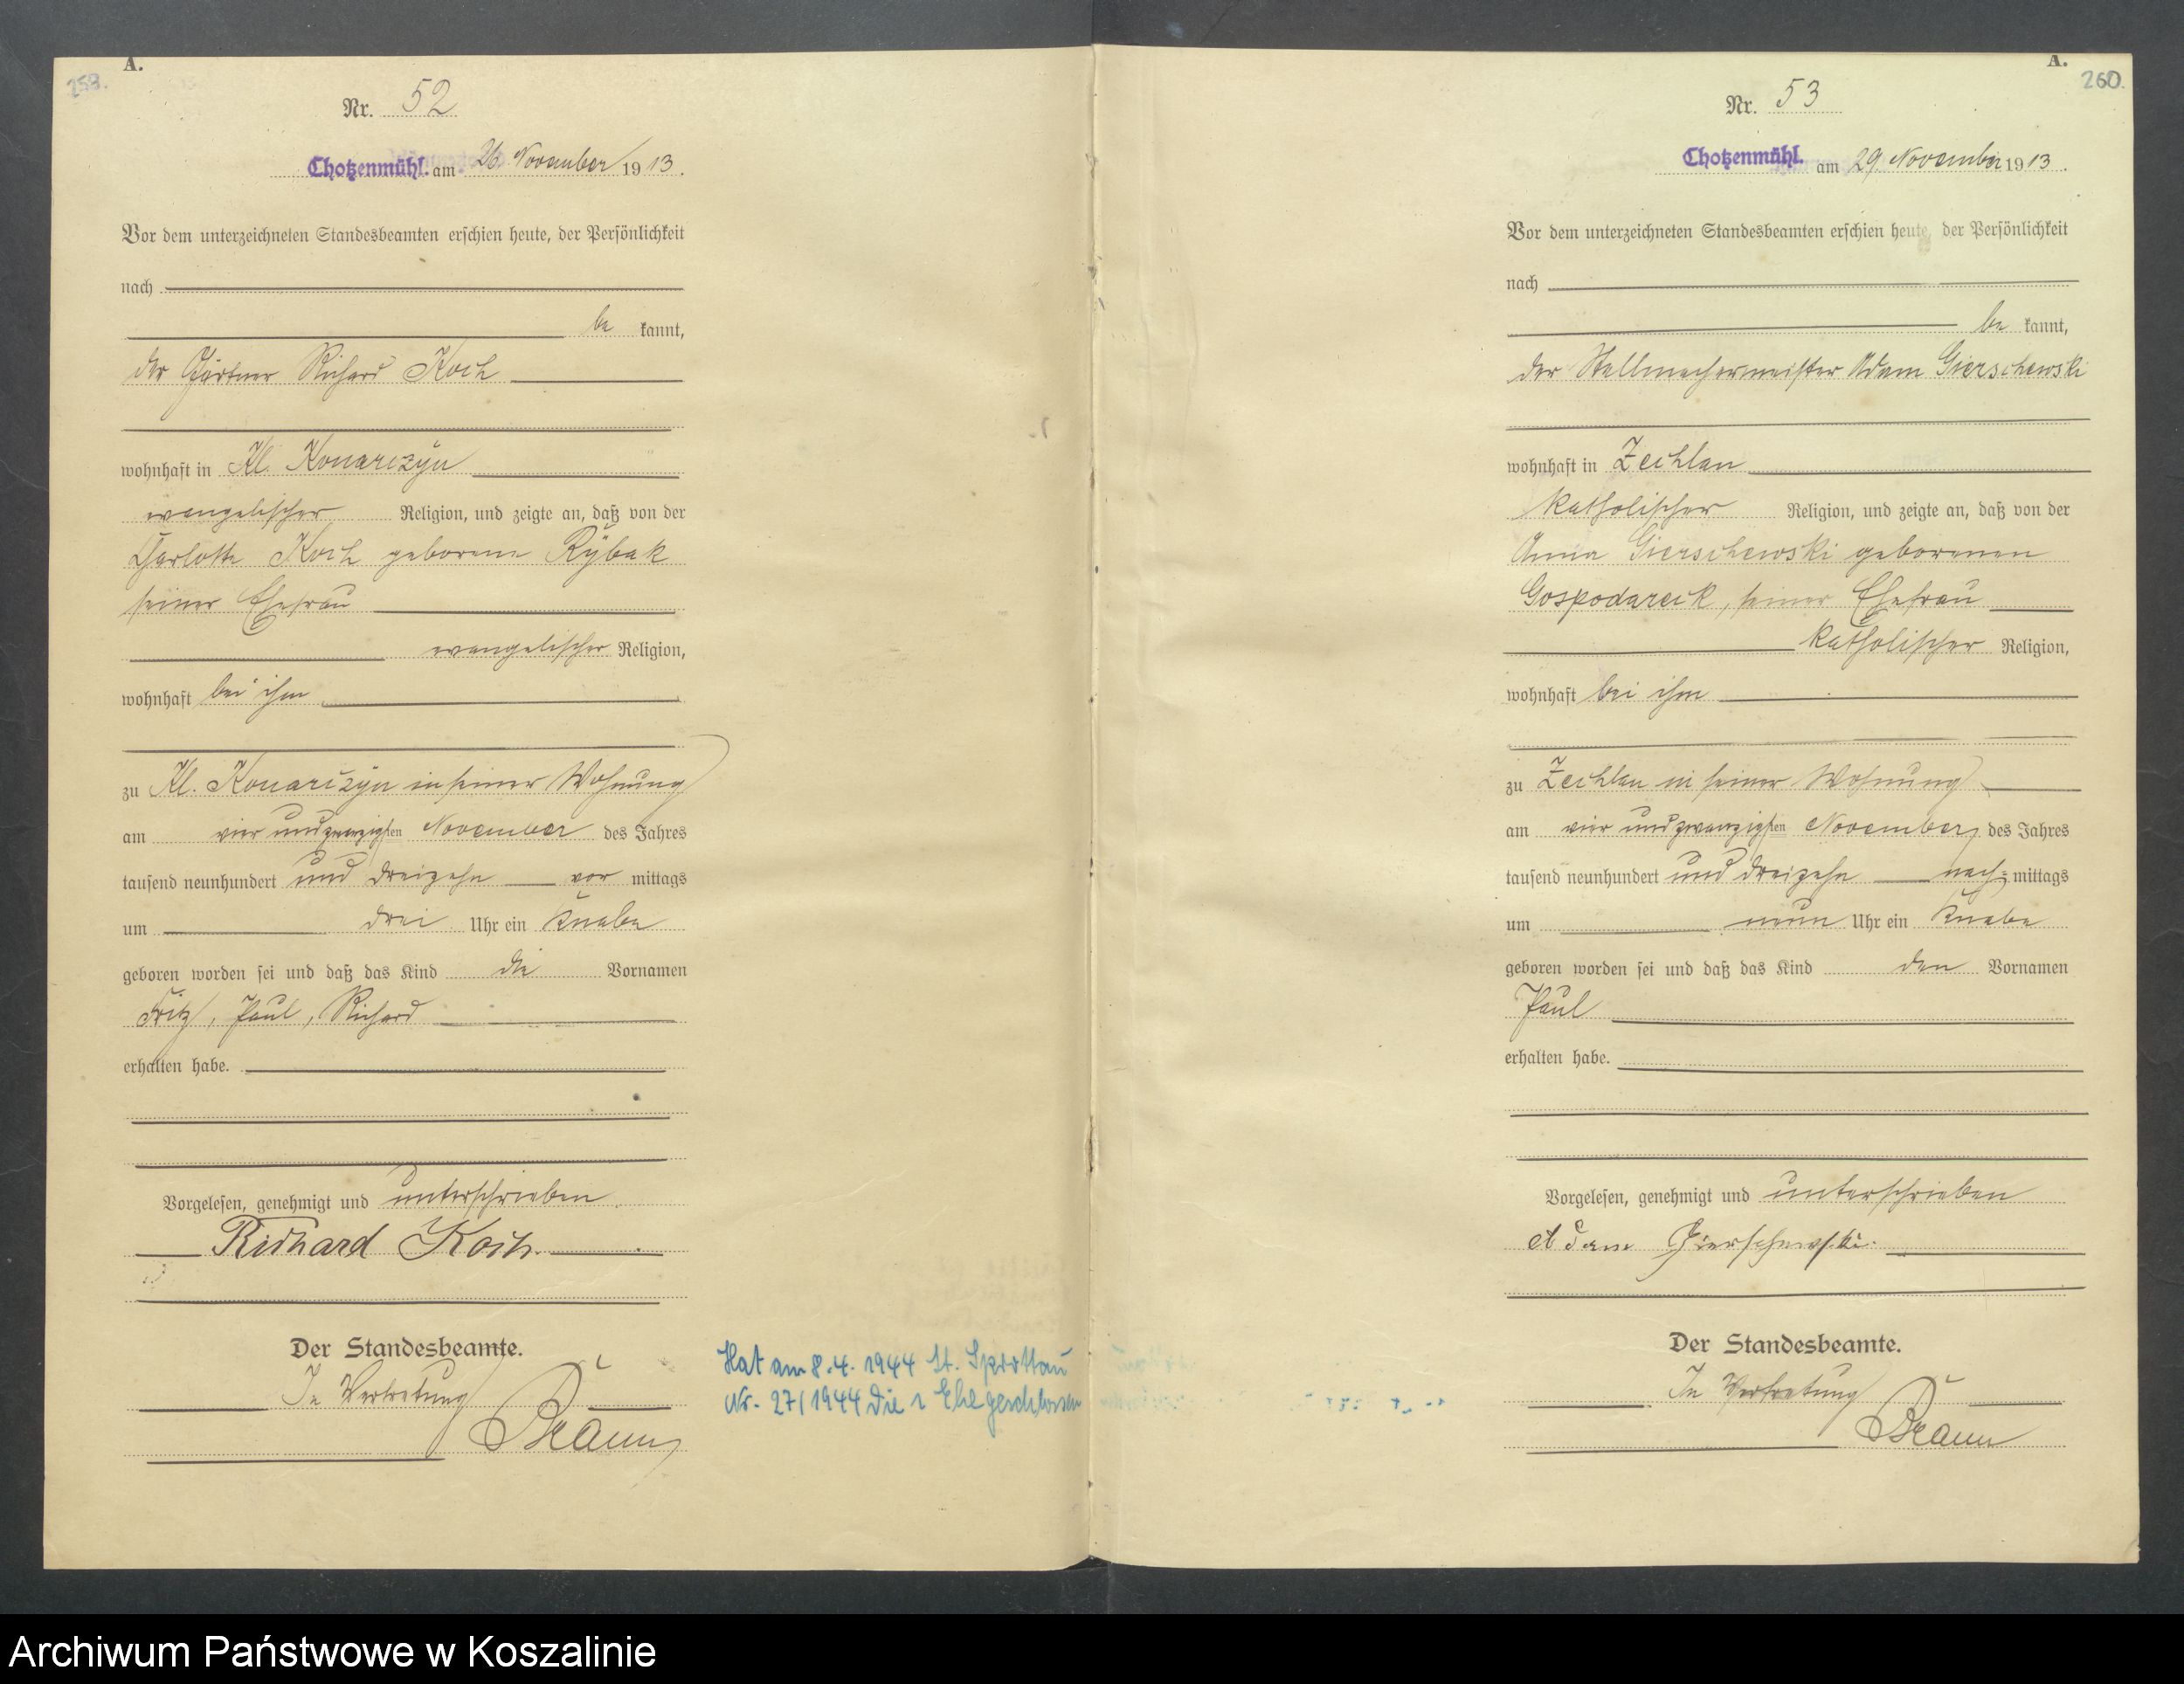 A.
Nr. 52
Chotzenmühl. am 26. November 1913.
Vor dem unterzeichneten Standesbeamten erschien heute, der Persönlichkeit
nach
be kannt,
der Gärtner Richard Koch
wohnhaft in Kl. Konarczyn
evangelischer Religion, und zeigte an, daß von der
Charlotte Koch geborene Rybak
seiner Ehefrau
evangelischer Religion,
wohnhaft bei ihm
zu Kl. Konarczyn in seiner Wohnung
am vier und zwanzigsten November des Jahres
tausend neunhundert und dreizehn vor mittags
um drei Uhr ein Knabe
geboren worden sei und daß das Kind die Vornamen
Fritz, Paul, Richard
erhalten habe.
Vorgelesen, genehmigt und unterschrieben
Richard Koch.
Der Standesbeamte.
In Vertretung
Braun
Hat am 8.4.1944 St. Sprottau
Nr. 27/1944 die 1 Ehe geschlossen
A.
260.
Nr. 53
Chotzenmühl. am 29. November 1913.
Vor dem unterzeichneten Standesbeamten erschien heute, der Persönlichkeit
nach
be kannt,
der Stellmachermeister Adam Gierschewski
wohnhaft in Zechlau
katholischer Religion, und zeigte an, daß von der
Anna Gierschewski geborenen
Gospodareck, seiner Ehefrau
katholischer Religion,
wohnhaft bei ihm
zu Zechlau in seiner Wohnung
am vier und zwanzigsten November des Jahres
tausend neunhundert und dreizehn nach= mittags
um neun Uhr ein Knabe
geboren worden sei und daß das Kind den Vornamen
Paul
erhalten habe.
Vorgelesen, genehmigt und unterschrieben
Adam Gierschewski.
Der Standesbeamte.
In Vertretung
Braun
Archiwum Państwowe w Koszalinie